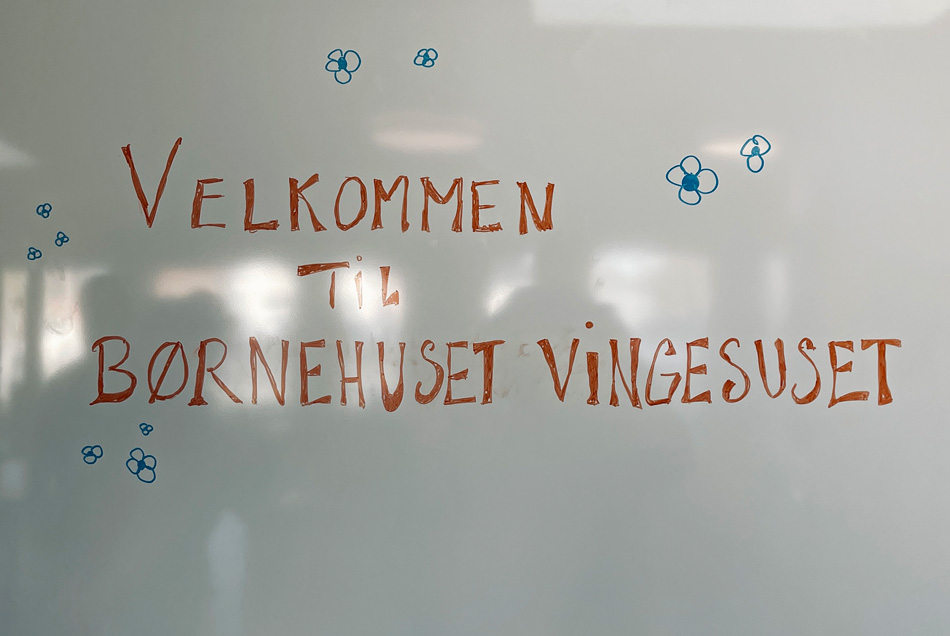 VELKOMMEN
TiL
BØRNEHUSET ViNGESUSET